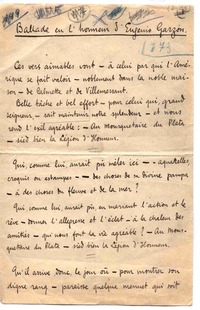 Ballade en l'honneur d'Eugenio Garzón.
1873
Ces vers aimables vont — à celui par qui l'Amé-
rique se fait valoir — noblement dans la noble mai-
son de Calmette et de Villemessant.
Belle tâche et bel effort — pour celui qui, grand
seigneur, — sait maintenir notre splendeur — et nous
rend l'exil agréable : — Au Mousquetaire du Plata
— sied bien la Légion d'Honneur.
Qui, comme lui, aurait pu mêler ici — aquarelles,
croquis ou estampes — des choses de sa divine pampa
— à des choses du fleuve et de la mer ?
Qui, comme lui, aurait pu, en mariant l'action et le
rêve — donner l'allégresse et l'éclat — à la chaleur des
amitiés — qui nous font la vie agréable ? — Au Mous-
quetaire du Plata — sied bien la Légion d'Honneur.
Qu'il arrive donc le jour où — pour montrer son
digne rang — paraisse quelque menuet qui soit